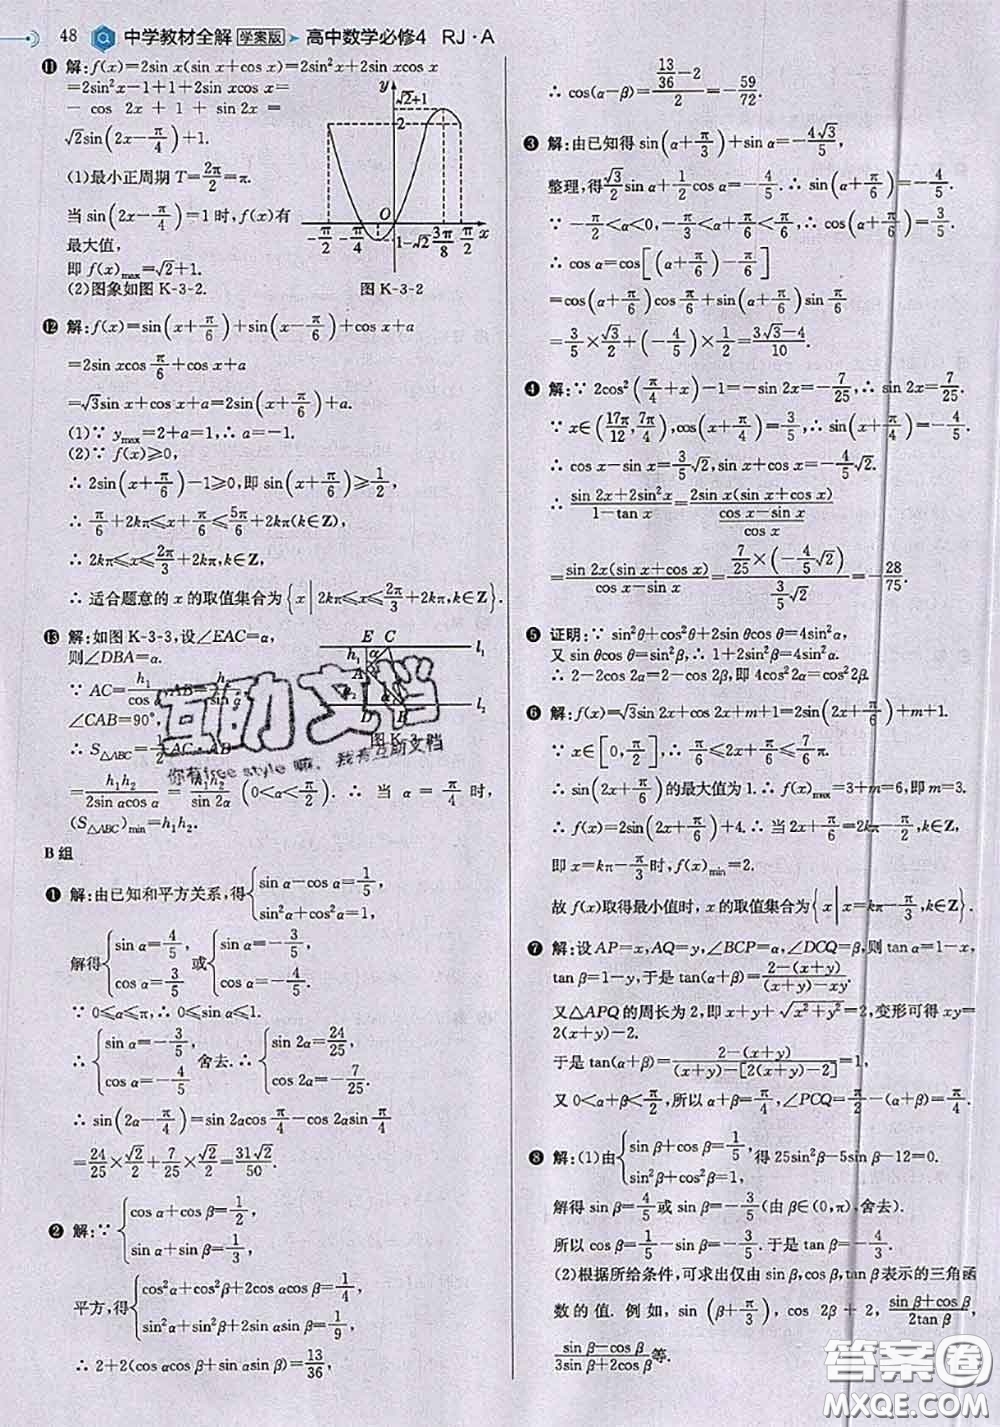 48 中学教材全解 学案版 ➤ 高中数学必修4 RJ·A
⓫ 解:f(x)=2sin x(sin x+cos x)=2sin²x+2sin xcos x
=2sin²x-1+1+2sin xcos x=
- cos 2x + 1 + sin 2x =
√2sin(2x-π/4)+1.
(1)最小正周期 T=2π/2=π.
当sin(2x-π/4)=1时,f(x)有
最大值,
即 f(x)max=√2+1.
(2)图象如图 K-3-2.
y
√2+1
2
O
-π/2 -π/4 1-√2 3π/8 π/2 x
图 K-3-2
⓬ 解:f(x)=sin(x+π/6)+sin(x-π/6)+cos x+a
=2sin xcos π/6+cos x+a
=√3sin x+cos x+a=2sin(x+π/6)+a.
(1)∵ ymax=2+a=1,∴ a=-1.
(2)∵ f(x)≥0,
∴ 2sin(x+π/6)-1≥0,即 sin(x+π/6)≥1/2,
∴ π/6+2kπ≤x+π/6≤5π/6+2kπ(k∈Z),
∴ 2kπ≤x≤2π/3+2kπ,k∈Z,
∴ 适合题意的 x 的取值集合为{x|2kπ≤x≤2π/3+2kπ,k∈Z}.
⓭ 解:如图 K-3-3,设∠EAC=α,
则∠DBA=α.
E C l₁
h₁
A
D B l₂
∠CAB=90°,
图 K-3-
互助文档
你有free style 嘛,我有互助文档
=h₁h₂/(2sin αcos α)=h₁h₂/sin 2α (0<α<π/2). ∴ 当 α=π/4 时,
(S△ABC)min=h₁h₂.
B 组
❶ 解:由已知和平方关系,得{sin α-cos α=1/5, sin²α+cos²α=1,
解得{sin α=4/5, cos α=3/5 或{sin α=-3/5, cos α=-4/5.
∵ 0≤α≤π,∴ 0≤sin α≤1.
∴ {sin α=-3/5, cos α=-4/5 舍去. ∴ {sin 2α=24/25, cos 2α=-7/25.
∴ sin(2α-π/4)=sin 2αcos π/4-cos 2αsin π/4
=24/25×√2/2+7/25×√2/2=31√2/50.
❷ 解:∵{cos α+cos β=1/2, sin α+sin β=1/3,
平方,得{cos²α+cos²β+2cos αcos β=1/4, sin²α+sin²β+2sin αsin β=1/9,
∴ 2+2(cos αcos β+sin αsin β)=13/36,
∴ cos(α-β)=(13/36-2)/2=-59/72.
❸ 解:由已知得 sin(α+π/3)+sin α=-4√3/5,
整理,得√3/2 sin α+1/2 cos α=-4/5.∴ sin(α+π/6)=-4/5.
∵ -π/2<α<0,-π/3<α+π/6<π/6,∴ cos(α+π/6)=3/5.
∴ cos α=cos[(α+π/6)-π/6]
=cos(α+π/6)cos π/6+sin(α+π/6)sin π/6
=3/5×√3/2+(-4/5)×1/2=(3√3-4)/10.
❹ 解:∵ 2cos²(π/4+x)-1=-sin 2x=-7/25,∴ sin 2x=7/25.
∵ x∈(17π/12,7π/4),cos(x+π/4)=3/5,∴ sin(x+π/4)=-4/5.
∴ cos x-sin x=3/5√2,sin x+cos x=-4/5√2.
∴ (sin 2x+2sin²x)/(1-tan x)=2sin x(sin x+cos x)/((cos x-sin x)/cos x)
=sin 2x(sin x+cos x)/(cos x-sin x)=(7/25×(-4/5√2))/(3/5√2)=-28/75.
❺ 证明:∵ sin²θ+cos²θ+2sin θcos θ=4sin²α,
又 sin θcos θ=sin²β,∴ 1+2sin²β=4sin²α.
∴ 2-2cos 2α=2-cos 2β,即 4cos²2α=cos²2β.
❻ 解:f(x)=√3sin 2x+cos 2x+1+m=2sin(2x+π/6)+m+1.
∵ x∈[0,π/2],∴ π/6≤2x+π/6≤7π/6.
∴ sin(2x+π/6)的最大值为 1.∴ f(x)max=3+m=6,即 m=3.
∴ f(x)=2sin(2x+π/6)+4.∴ 当 2x+π/6=2kπ-π/2,k∈Z,
即 x=kπ-π/3时,f(x)min=2.
故 f(x)取得最小值时,x 的取值集合为{x|x=kπ-π/3,k∈Z}.
❼ 解:设 AP=x,AQ=y,∠BCP=α,∠DCQ=β,则 tan α=1-x,
tan β=1-y,于是 tan(α+β)=(2-(x+y))/((x+y)-xy).
又△APQ 的周长为 2,即 x+y+√(x²+y²)=2,变形可得 xy=
2(x+y)-2.
于是 tan(α+β)=(2-(x+y))/((x+y)-[2(x+y)-2])=1,
又 0<α+β<π/2,所以 α+β=π/4,∠PCQ=π/2-(α+β)=π/4.
❽ 解:(1)由{sin β+cos β=1/5, sin²β+cos²β=1, 得 25sin²β-5sin β-12=0.
解得 sin β=4/5或 sin β=-3/5(由 β∈(0,π),舍去).
所以 cos β=1/5-sin β=-3/5.于是 tan β=-4/3.
(2)根据所给条件,可求出仅由 sin β,cos β,tan β 表示的三角函
数的值. 例如,sin(β+π/3), cos 2β+2, (sin β+cos β)/(2tan β),
(sin β-cos β)/(3sin β+2cos β)等.
答案圈
MXQE.COM